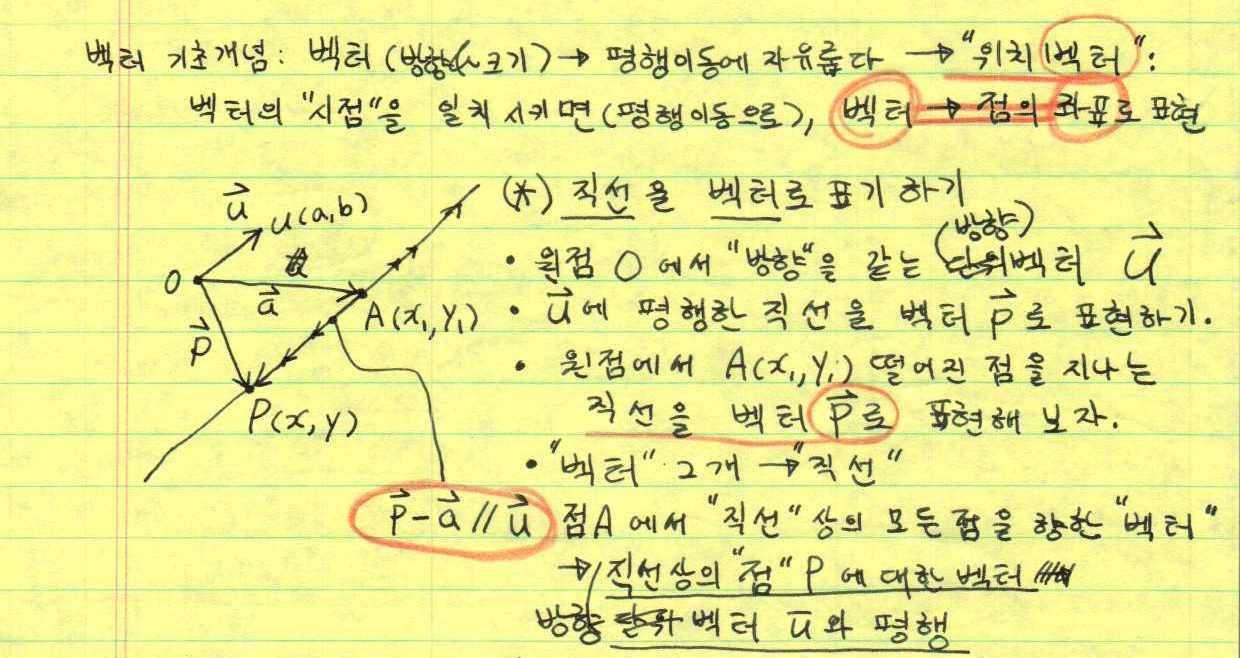 벡터 기초개념: 벡터 (방향, 크기) → 평행이동에 자유롭다 → "위치벡터":
벡터의 "시점"을 일치 시키면 (평행이동으로), 벡터 → 점의 좌표로 표현
(*) 직선을 벡터로 표기 하기
u⃗ u(a,b)
(방향)
• 원점 O에서 "방향"을 같는 벡터 u⃗
O a⃗ A(x₁,y₁)
• u⃗에 평행한 직선을 벡터 p⃗로 표현하기.
p⃗
• 원점에서 A(x₁,y₁) 떨어진 점을 지나는
P(x,y)
직선을 벡터 p⃗로 표현해 보자.
• "벡터" 2개 → "직선"
p⃗-a⃗ // u⃗
점A에서 "직선"상의 모든 점을 향한 "벡터"
→ 직선상의 "점" P에 대한 벡터
방향 벡터 u와 평행